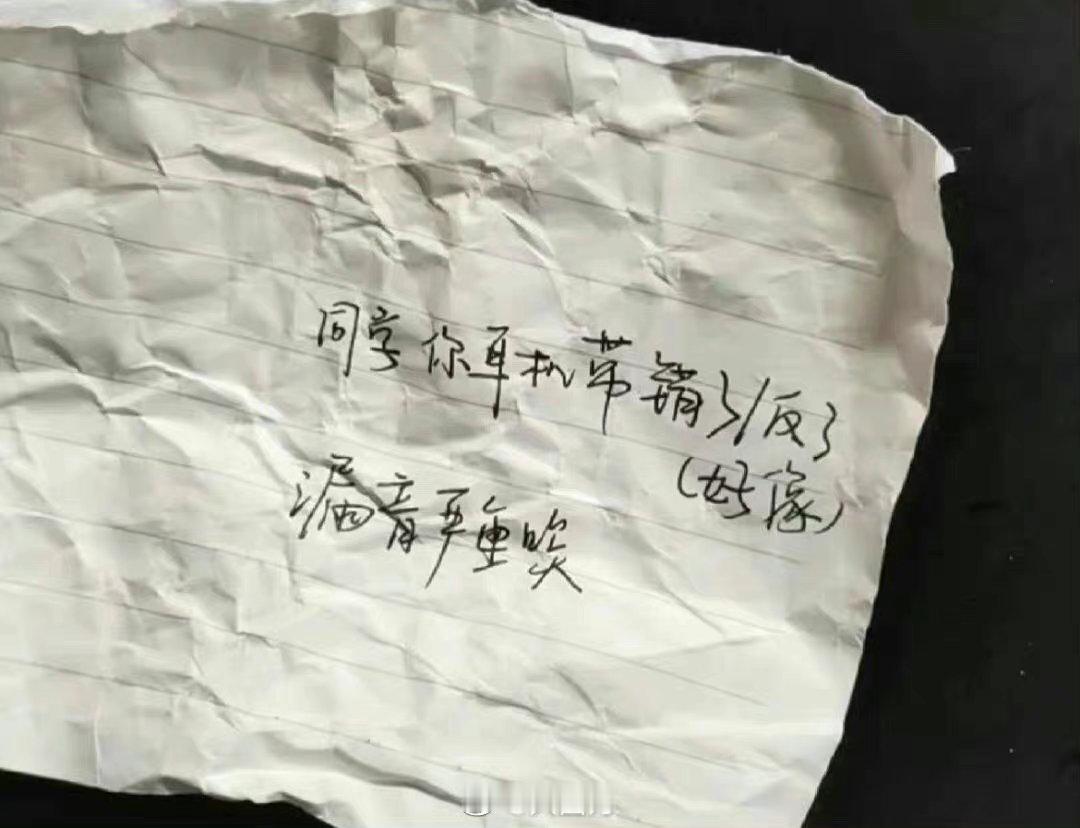 同学你耳机带错了/反了
(好像)
漏音严重哎